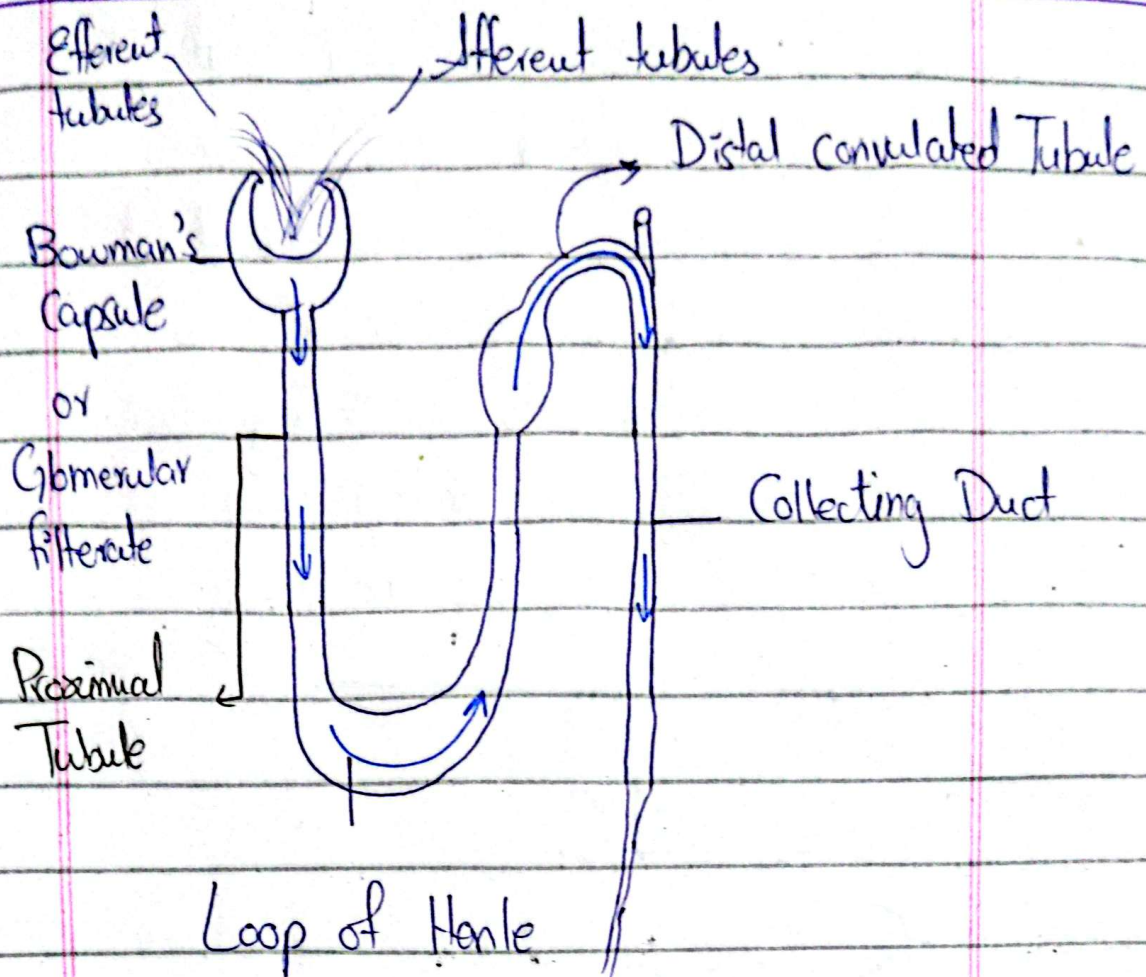 Efferent
tubules
Afferent tubules
Distal convulated Tubule
Bowman's
Capsule
or
Glomerular
filterate
Collecting Duct
Proximual
Tubule
Loop of Henle